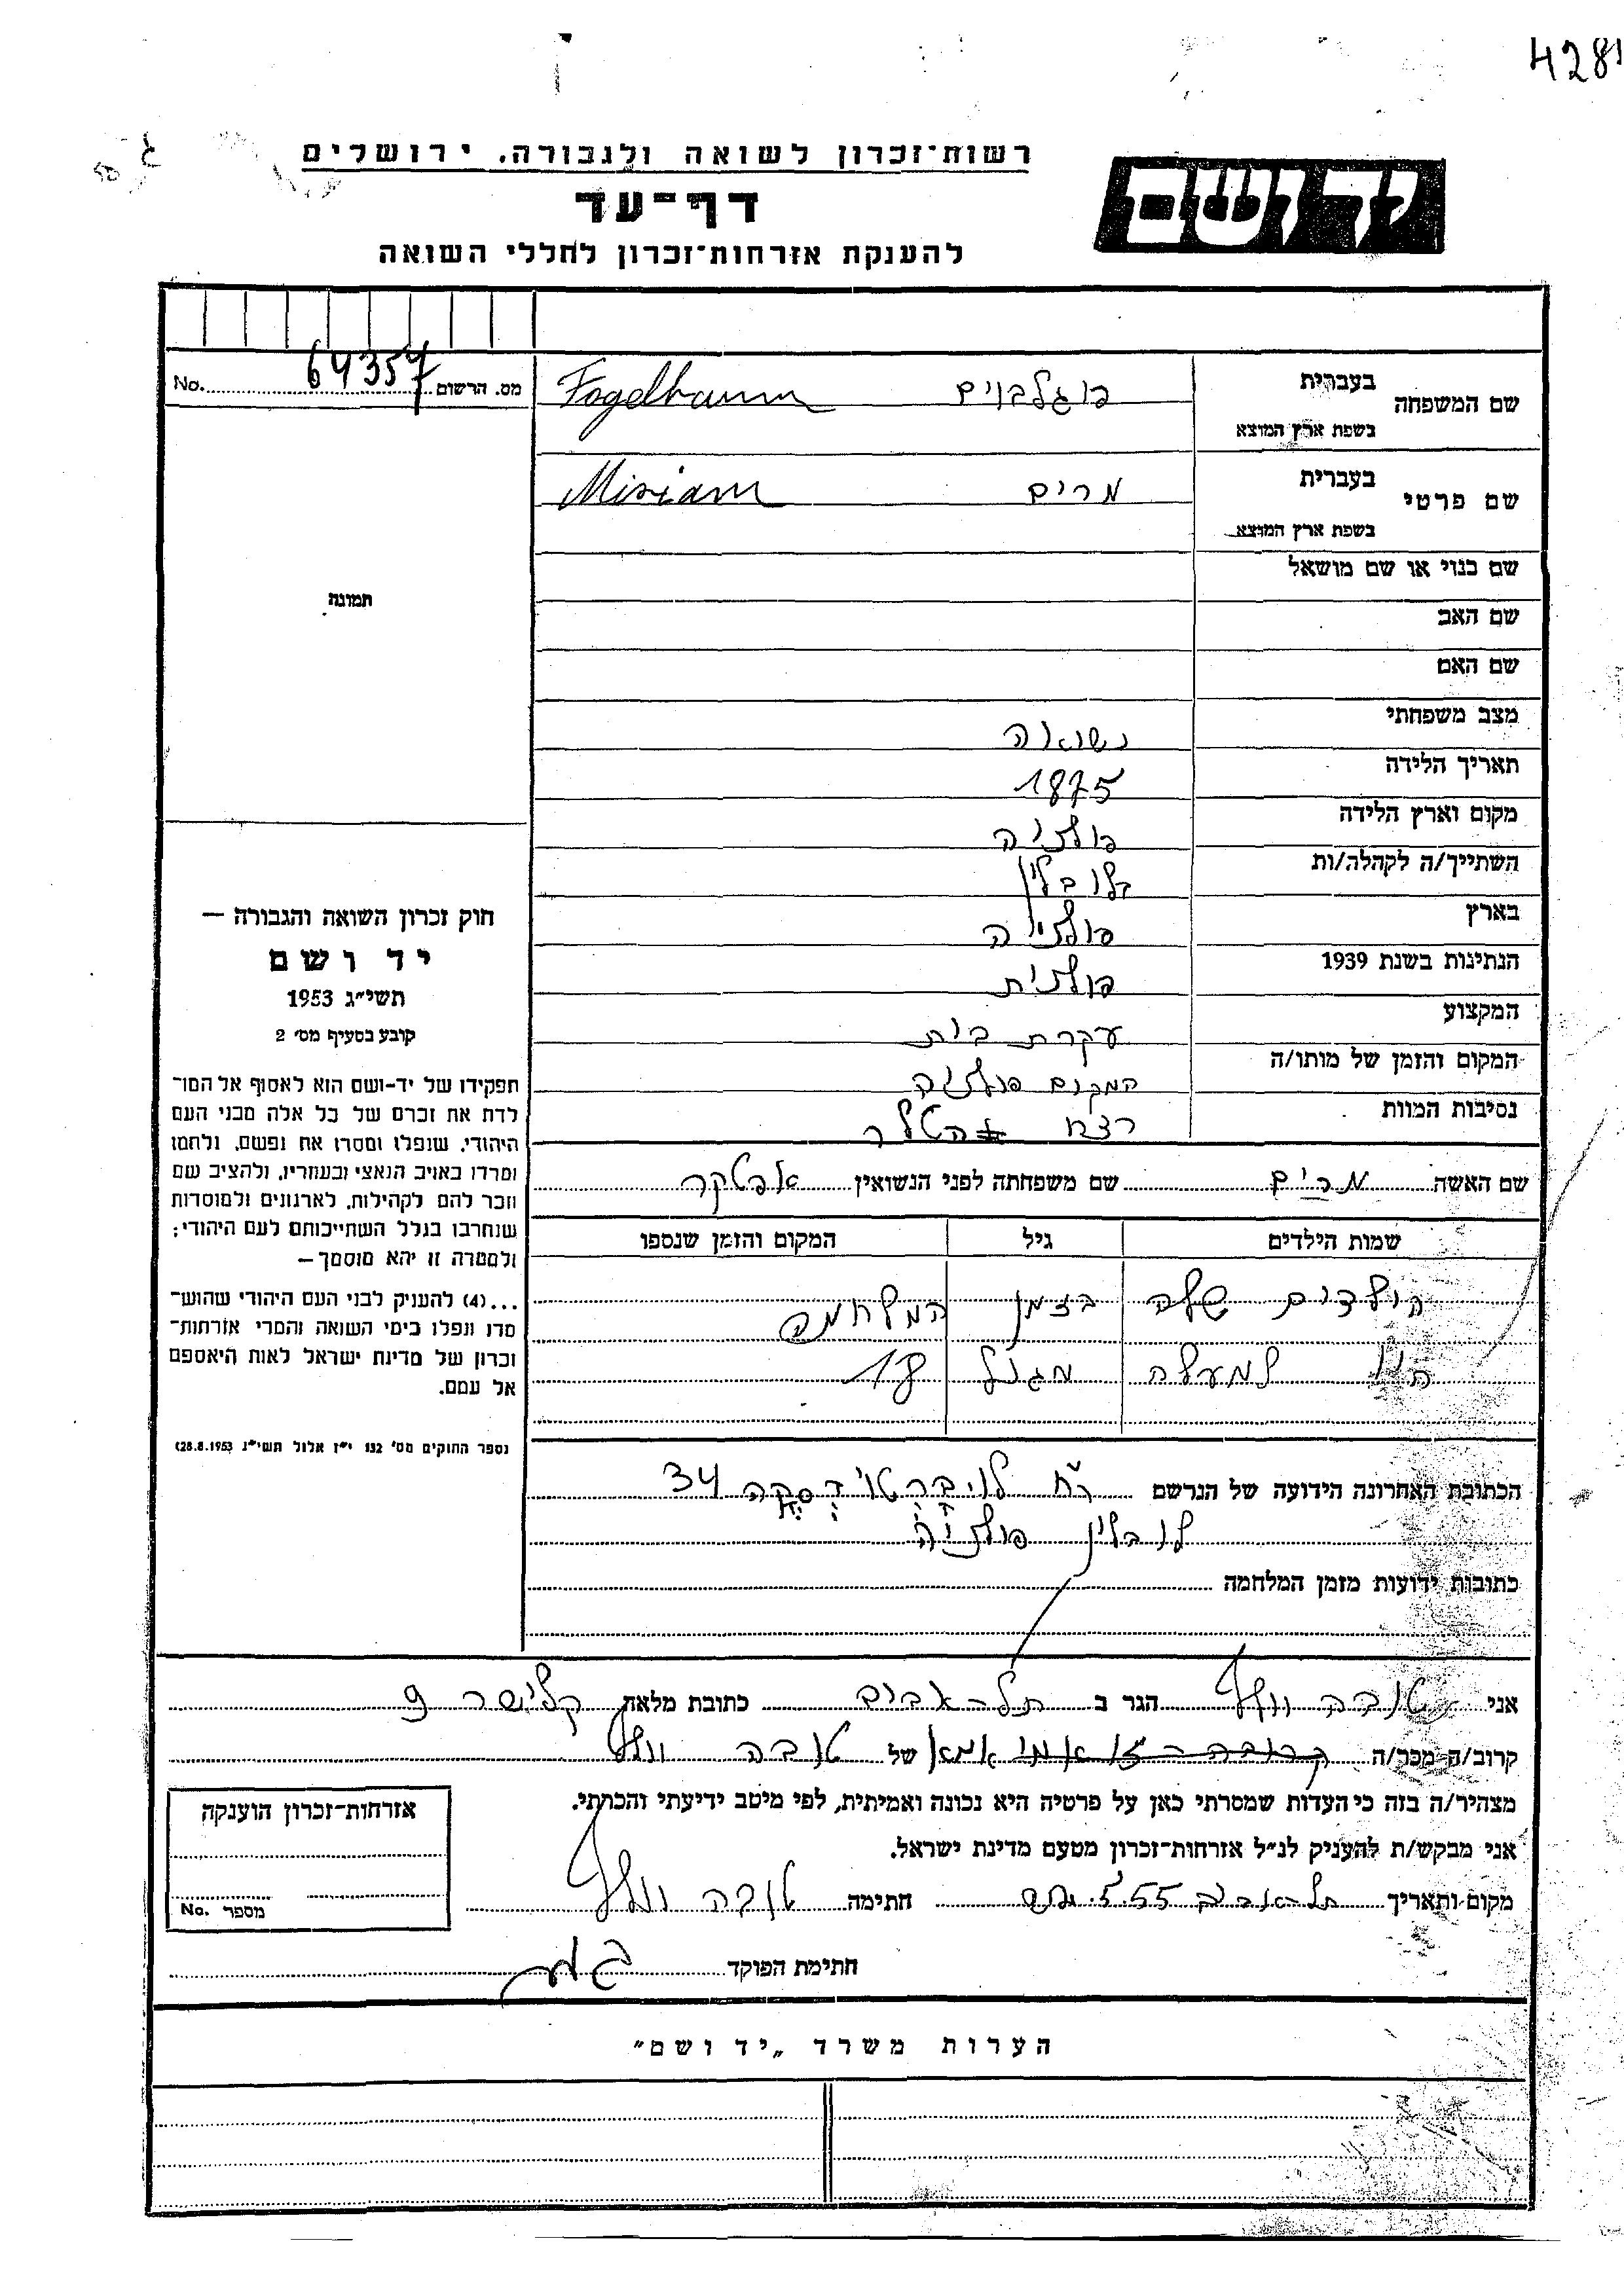 4281
רשות־זכרון לשואה ולגבורה. ירושלים
יד ושם
דף־עד
להענקת אזרחות־זכרון לחללי השואה
No. 64357 מס. הרשום
שם המשפחה בעברית פוגלבוים Fogelbaum
בשפת ארץ המוצא
שם פרטי בעברית מרים Miriam
בשפת ארץ המוצא
שם כנוי או שם מושאל
שם האב
שם האם
מצב משפחתי נשואה
תאריך הלידה 1875
מקום וארץ הלידה פולניה
השתייך/ה לקהלה/ות בלובלין
בארץ פולניה
הנתינות בשנת 1939 פולנית
המקצוע עקרת בית
המקום והזמן של מותו/ה המקום פולניה
נסיבות המוות רצח היטלר
שם האשה מרים שם משפחתה לפני הנשואין אפטקר
שמות הילדים גיל המקום והזמן שנספו
הילדים שלה בזמן המלחמה
היו למעלה מגיל 18
הכתובת האחרונה הידועה של הנרשם רח 34
לובלין פולניה
כתובות ידועות מזמן המלחמה
תמונה
חוק זכרון השואה והגבורה —
יד ושם
תשי״ג 1953
קובע בסעיף מס׳ 2
תפקידו של יד-ושם הוא לאסוף אל המו־
לדת את זכרם של כל אלה מבני העם
היהודי, שנפלו ומסרו את נפשם, נלחמו
ומרדו באויב הנאצי ובעוזריו, ולהציב שם
וזכר להם לקהילות, לארגונים ולמוסדות
שנחרבו בגלל השתייכותם לעם היהודי;
ולמטרה זו יהא מוסמך—
...(4) להעניק לבני העם היהודי שהוש־
מדו ונפלו בימי השואה והמרי אזרחות־
זכרון של מדינת ישראל לאות היאספם
אל עמם.
(ספר החוקים מס׳ 132 י״ז אלול תשי״ג 28.8.1953)
אני טובה וולף הגר ב תל-אביב כתובת מלאה קלישר 9
קרוב/ה מכר/ה קרובה - זו אמי אמא של טובה וולף
מצהיר/ה בזה כי העדות שמסרתי כאן על פרטיה היא נכונה ואמיתית, לפי מיטב ידיעתי והכרתי.
אני מבקש/ת להעניק לנ״ל אזרחות־זכרון מטעם מדינת ישראל.
מקום ותאריך תל-אביב 5.55 חתימה טובה וולף
חתימת הפוקד
אזרחות־זכרון הוענקה
No. מספר
הערות משרד „יד ושם״